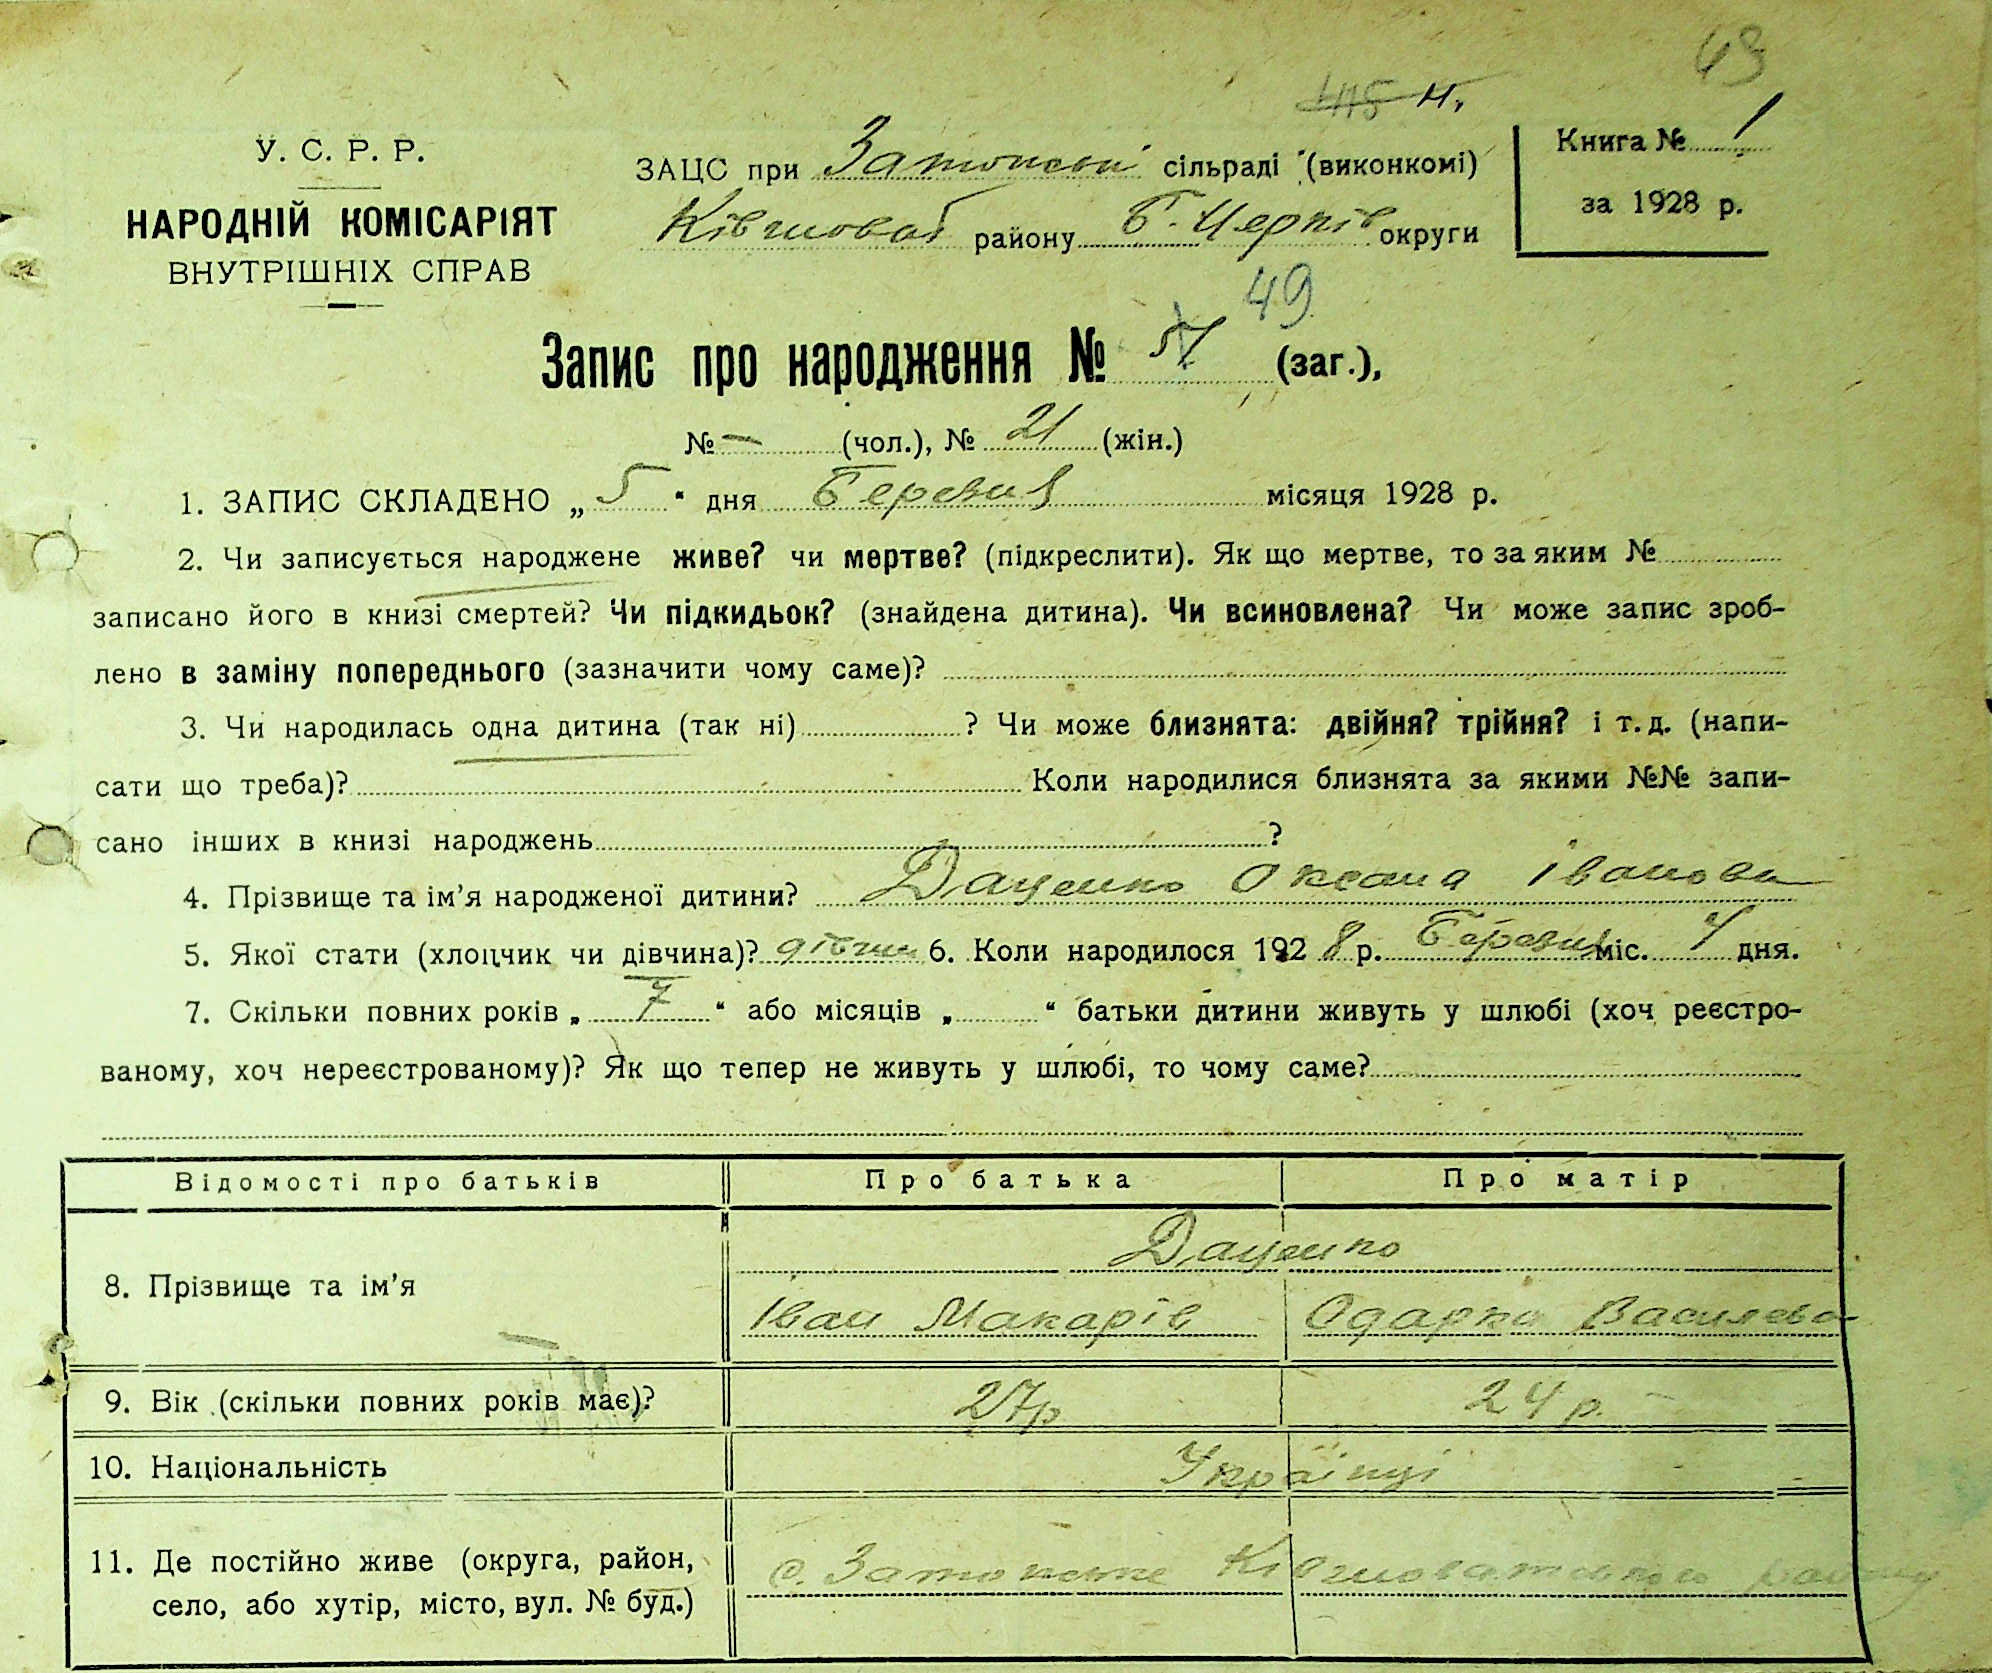 43
415 н.
У. С. Р. Р.
НАРОДНІЙ КОМІСАРІЯТ
ВНУТРІШНІХ СПРАВ
ЗАЦС при Затонські сільраді (виконкомі)
Ківшоват району Б-Церків округи
Книга № 1
за 1928 р.
49
Запис про народження № 51 (заг.),
№ – (чол.), № 21 (жін.)
1. ЗАПИС СКЛАДЕНО „ 5 “ дня Березня місяця 1928 р.
2. Чи записується народжене живе? чи мертве? (підкреслити). Як що мертве, то за яким №
записано його в книзі смертей? Чи підкидьок? (знайдена дитина). Чи всиновлена? Чи може запис зроб-
лено в заміну попереднього (зазначити чому саме)?
3. Чи народилась одна дитина (так ні) ? Чи може близнята: двійня? трійня? і т. д. (напи-
сати що треба)? Коли народилися близнята за якими №№ запи-
сано інших в книзі народжень ?
4. Прізвище та ім’я народженої дитини? Даценко Оксана Іванова
5. Якої стати (хлопчик чи дівчина)? дівчин 6. Коли народилося 1928 р. Березня міс. 4 дня.
7. Скільки повних років „ 7 “ або місяців „ “ батьки дитини живуть у шлюбі (хоч реєстро-
ваному, хоч нереєстрованому)? Як що тепер не живуть у шлюбі, то чому саме?
Відомості про батьків Про батька Про матір
8. Прізвище та ім’я Даценко
Іван Макарів Одарка Василева
9. Вік (скільки повних років має)? 27р 24 р.
10. Національність Українці
11. Де постійно живе (округа, район,
село, або хутір, місто, вул. № буд.)
с. Затонське Ківшоватського району